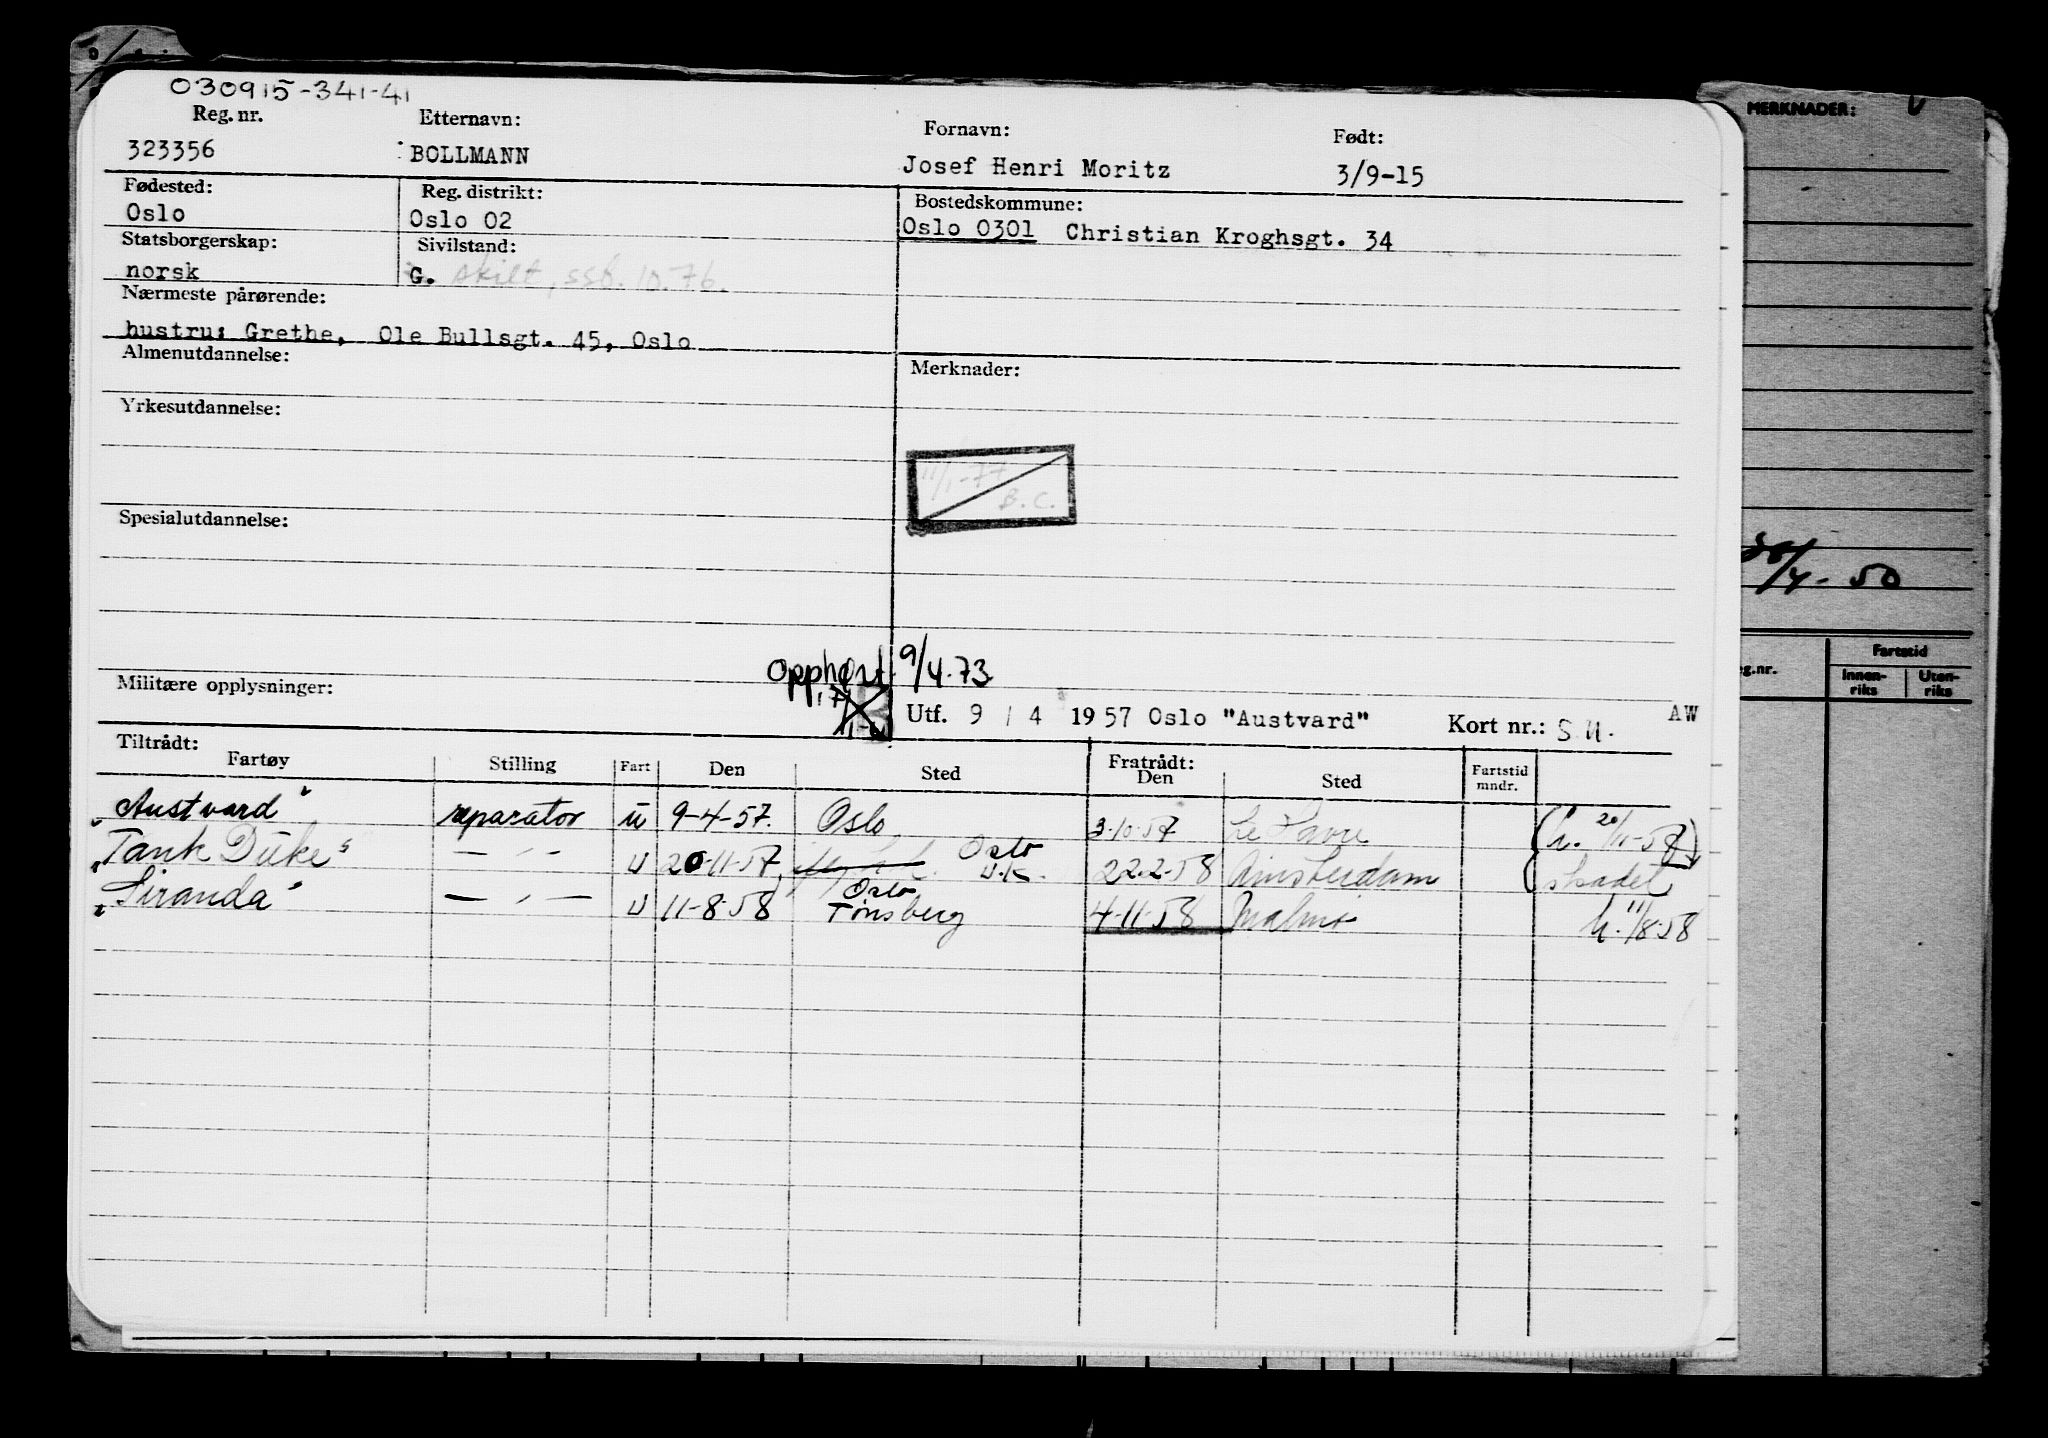 030915-341-41
Reg. nr. Etternavn: Fornavn: Født:
323356 BOLLMANN Josef Henri Moritz 3/9-15
Fødested: Reg. distrikt: Bostedskommune:
Oslo Oslo 02 Oslo 0301 Christian Kroghsgt. 34
Statsborgerskap: Sivilstand:
norsk G. skilt, ssb. 10.76.
Nærmeste pårørende:
hustru: Grethe, Ole Bullsgt. 45, Oslo
Almenutdannelse: Merknader:
Yrkesutdannelse:
11/1-77
B.C.
Spesialutdannelse:
Opphørt 9/4.73
Militære opplysninger:
Utf. 9 / 4 1957 Oslo "Austvard" Kort nr.: S.U. AW
Tiltrådt: Fratrådt:
Fartøy Stilling Fart Den Sted Den Sted Fartstid mndr.
"Austvard" reparatør u 9-4-57. Oslo 3-10-57 Le Havre (h. 20/11-57)
"Tank Duke" — " — U 20-11-57 Oslo U.K. 22-2-58 Amsterdam skadet
"Siranda" — " — U 11-8-58 Oslo Tønsberg 4-11-58 Malmø h. 11/8-58
MERKNADER:
/4-50
g.nr. Fartstid
Innen-riks Uten-riks